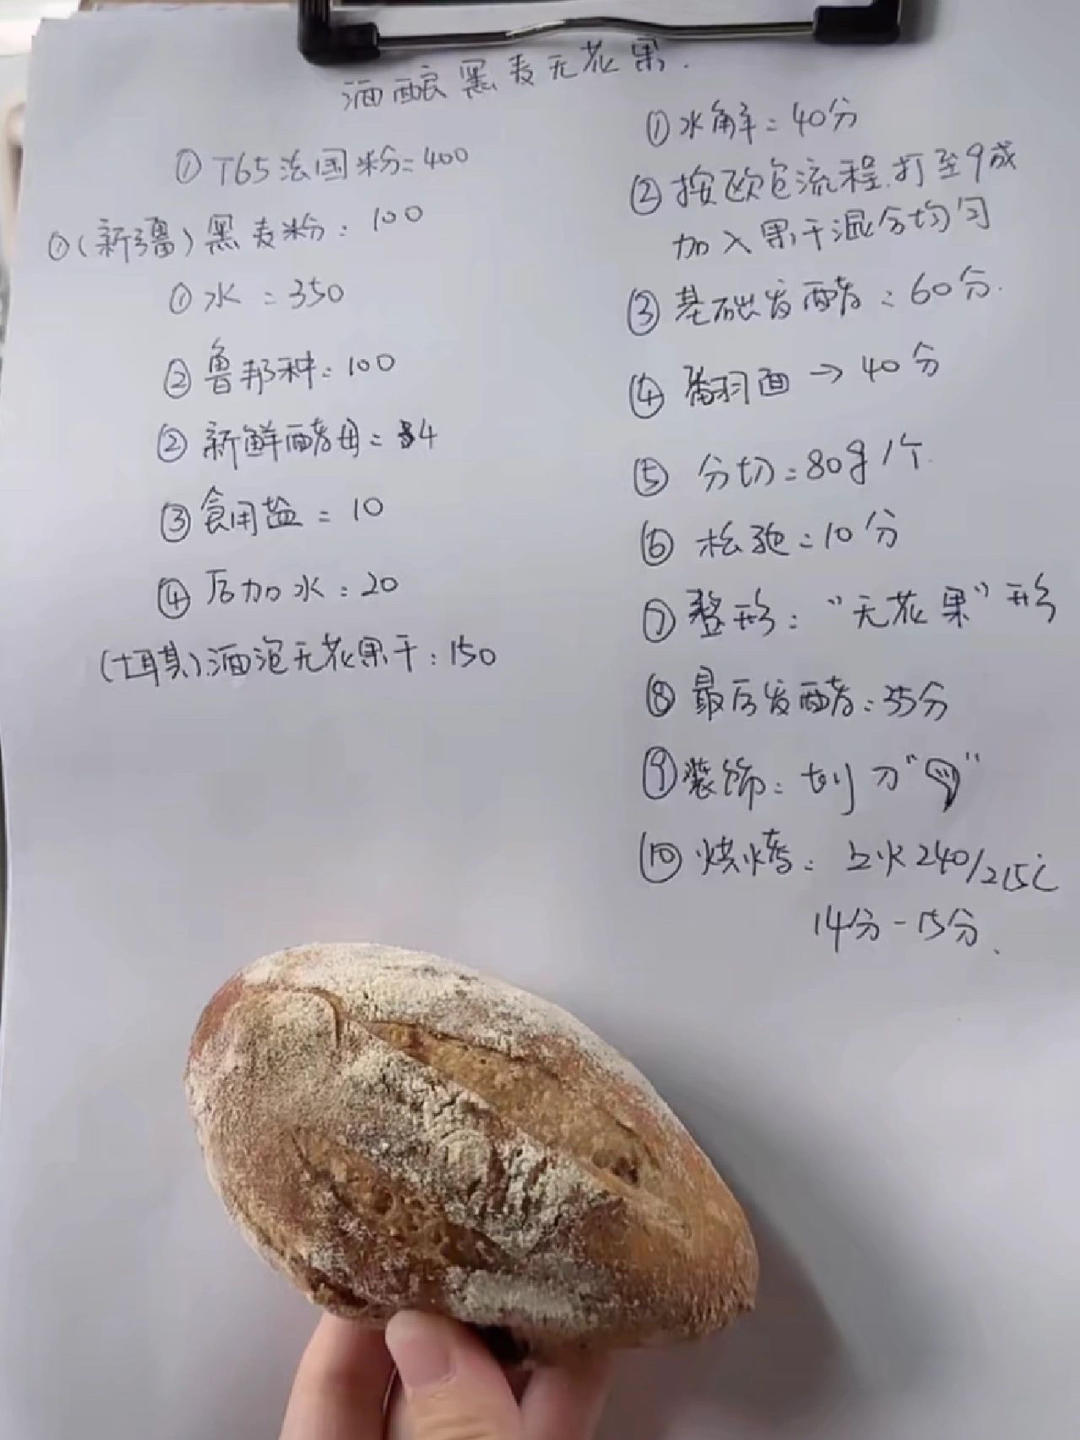 酒酿黑麦无花果.
① T65法国粉=400
①(新疆)黑麦粉: 100
①水 = 350
②鲁邦种: 100
②新鲜酵母 = 4
③食用盐 = 10
④后加水: 20
(土耳其)酒泡无花果干: 150
①水解 = 40分
②按欧包流程.打至9成
加入果干混合均匀
③基础发酵: 60分.
④翻面 → 40分
⑤ 分切 = 80g 1个
⑥ 松弛 = 10分
⑦ 整形: “无花果”形
⑧ 最后发酵: 35分
⑨装饰: 划刀“ ”
⑩ 烘烤: 上火240/215℃
14分-15分.